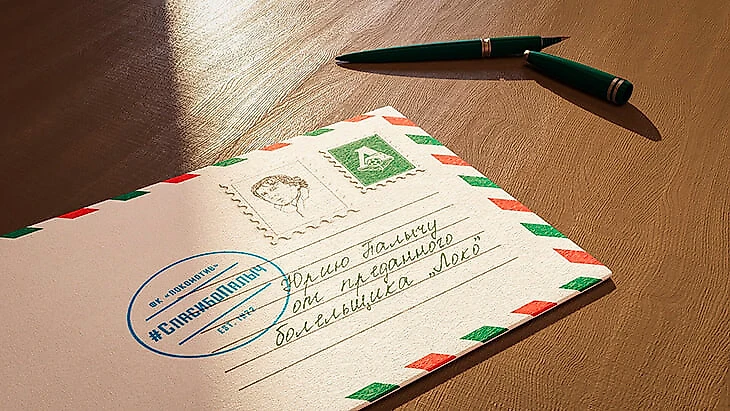 ФК «ЛОКОМОТИВ»
#СПАСИБОПАЛЫЧ
EST. 1992
Юрию Палычу
от преданного
болельщика „Локо“